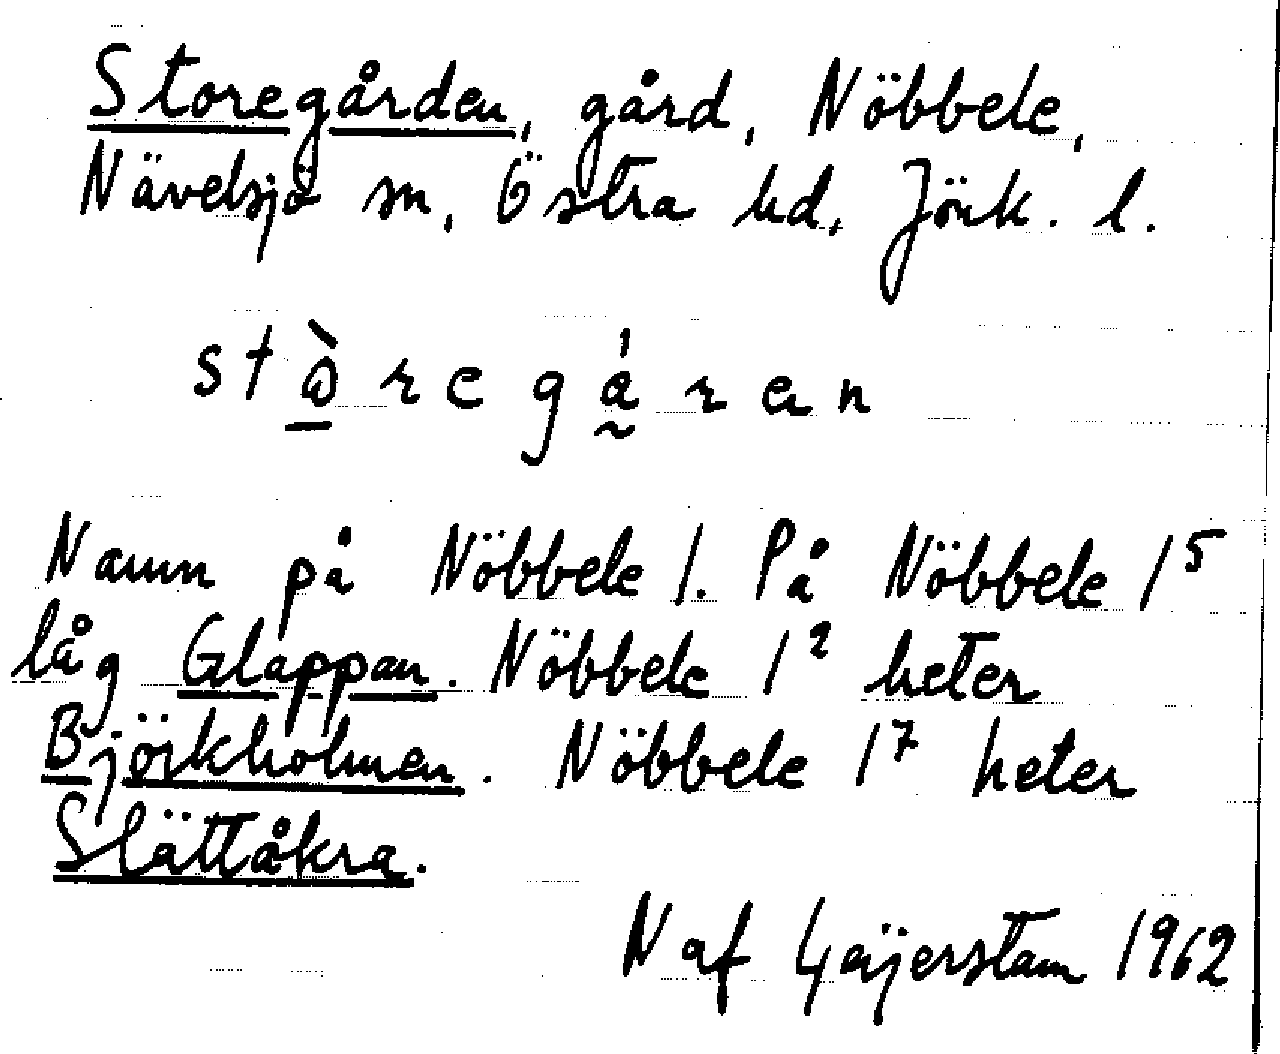 Storegården, gård, Nöbbele,
Nävelsjö sn, Östra hd, Jönk. l.
stòregáren
Namn på Nöbbele 1. På Nöbbele 1⁵
låg Glappan. Nöbbele 1² heter
Björkholmen. Nöbbele 1⁷ heter
Slättåkra.
N af Geijerstam 1962